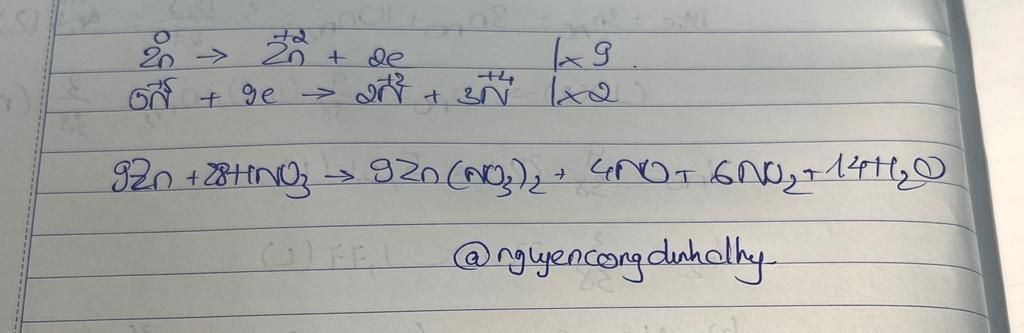 Zn⁰ → Zn⁺² + 2e |x 9.
5N⁺⁵ + 9e → 2N⁺² + 3N⁺⁴ |x2
9Zn + 28HNO₃ → 9Zn(NO₃)₂ + 4NO + 6NO₂ + 14H₂O
@nguyencongdinhdhy